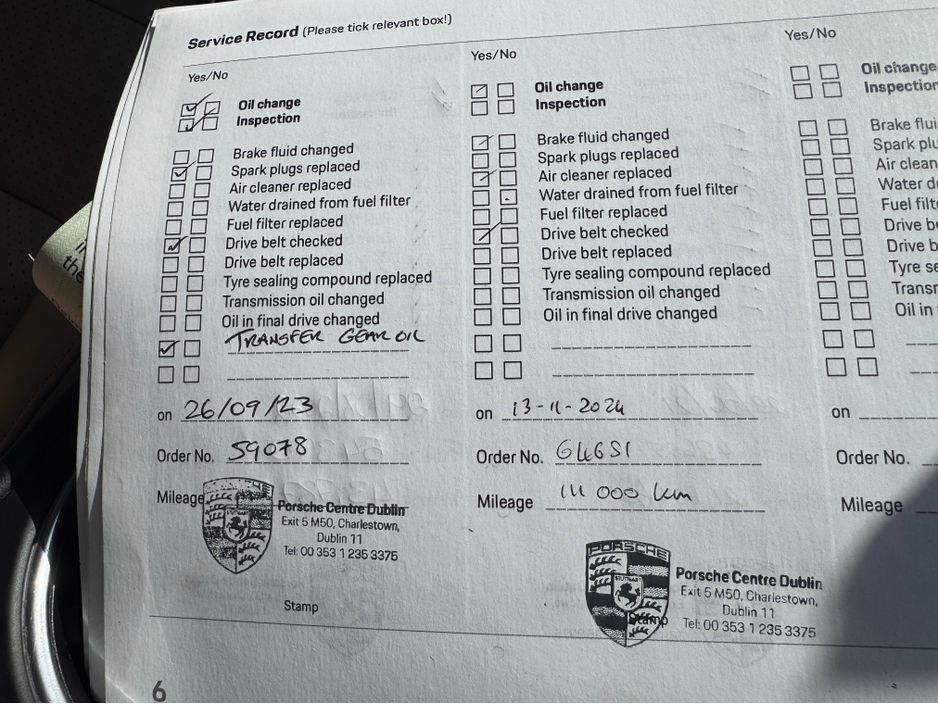 Service Record (Please tick relevant box!)
Yes/No
Oil change
Inspection
Brake fluid changed
Spark plugs replaced
Air cleaner replaced
Water drained from fuel filter
Fuel filter replaced
Drive belt checked
Drive belt replaced
Tyre sealing compound replaced
Transmission oil changed
Oil in final drive changed
TRANSFER GEAR OIL
on 26/09/23
Order No. 59078
Mileage
PORSCHE CENTRE DUBLIN
Exit 5 M50, Charlestown,
Dublin 11
Tel: 00 353 1 235 3375
Stamp
6
Yes/No
Oil change
Inspection
Brake fluid changed
Spark plugs replaced
Air cleaner replaced
Water drained from fuel filter
Fuel filter replaced
Drive belt checked
Drive belt replaced
Tyre sealing compound replaced
Transmission oil changed
Oil in final drive changed
on 13-11-2024
Order No.
Mileage 111 000 km
PORSCHE
STUTTGART
Porsche Centre Dublin
Exit 5 M50, Charlestown,
Dublin 11
Tel: 00 353 1 235 3375
Stamp
Yes/No
Oil change
Inspection
Brake flui
Spark plu
Air clean
Water d
Fuel filt
Drive be
Drive b
Tyre se
Transm
Oil in
on
Order No.
Mileage